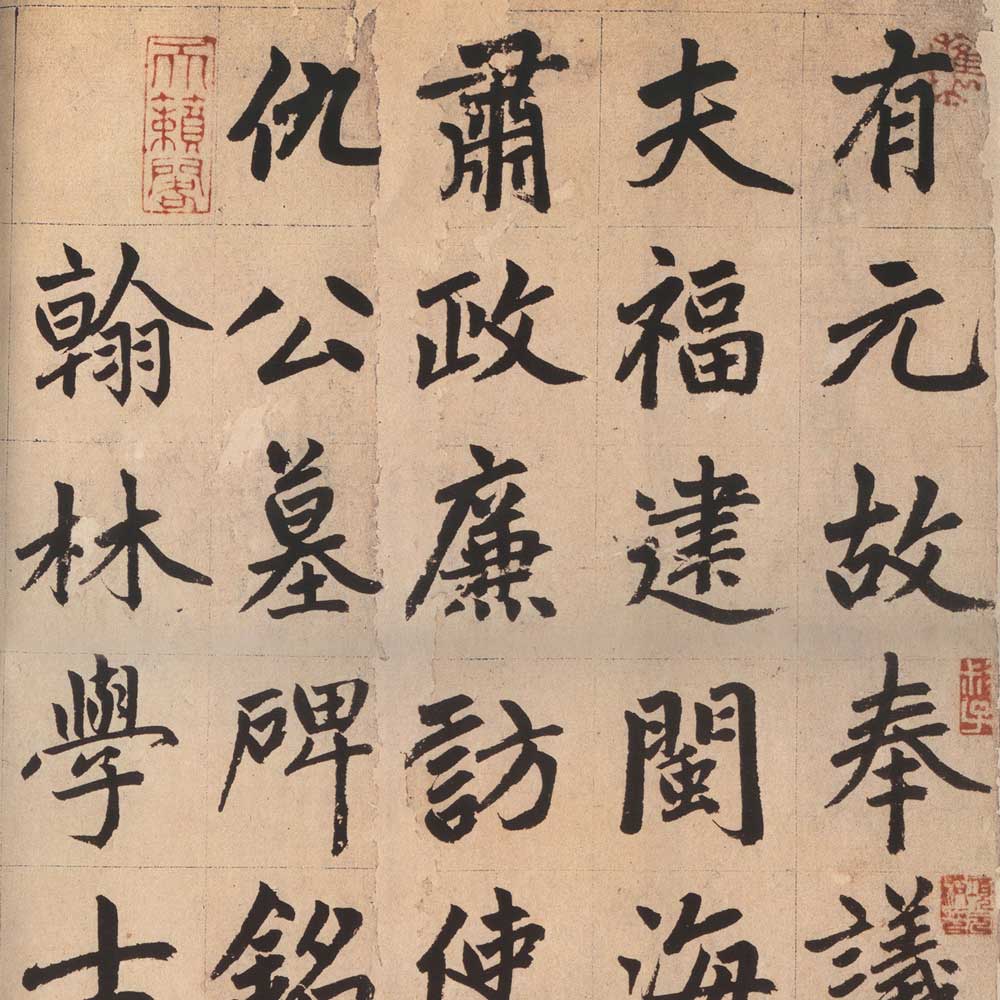 有元故奉議
夫福建閩海
肅政廉訪使
仇公墓碑銘
翰林學士
天籟閣